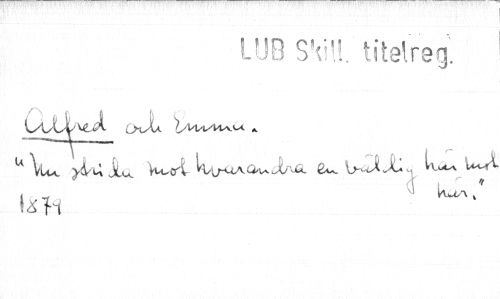 LUB Skill. titelreg.
Alfred och Emma.
"Nu strida mot hvarandra en väldig här mot
här."
1879